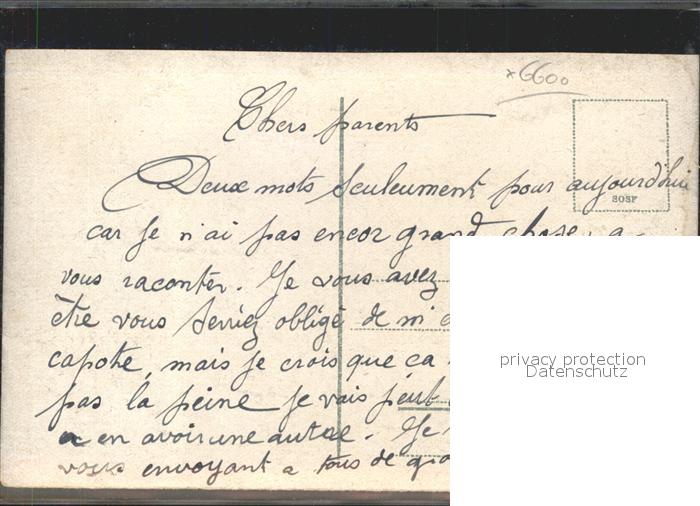 x6600
Chers parents
Deux mots seuleument pour aujourd'hui
SOSF
car je n'ai pas encor grand chose a
vous raconter. Je vous avez
être vous serriez obligé de m'
capote, mais je crois que ca
pas la peine je vais peut
a en avoir une autre. Je
vous envoyant a tous de
privacy protection
Datenschutz